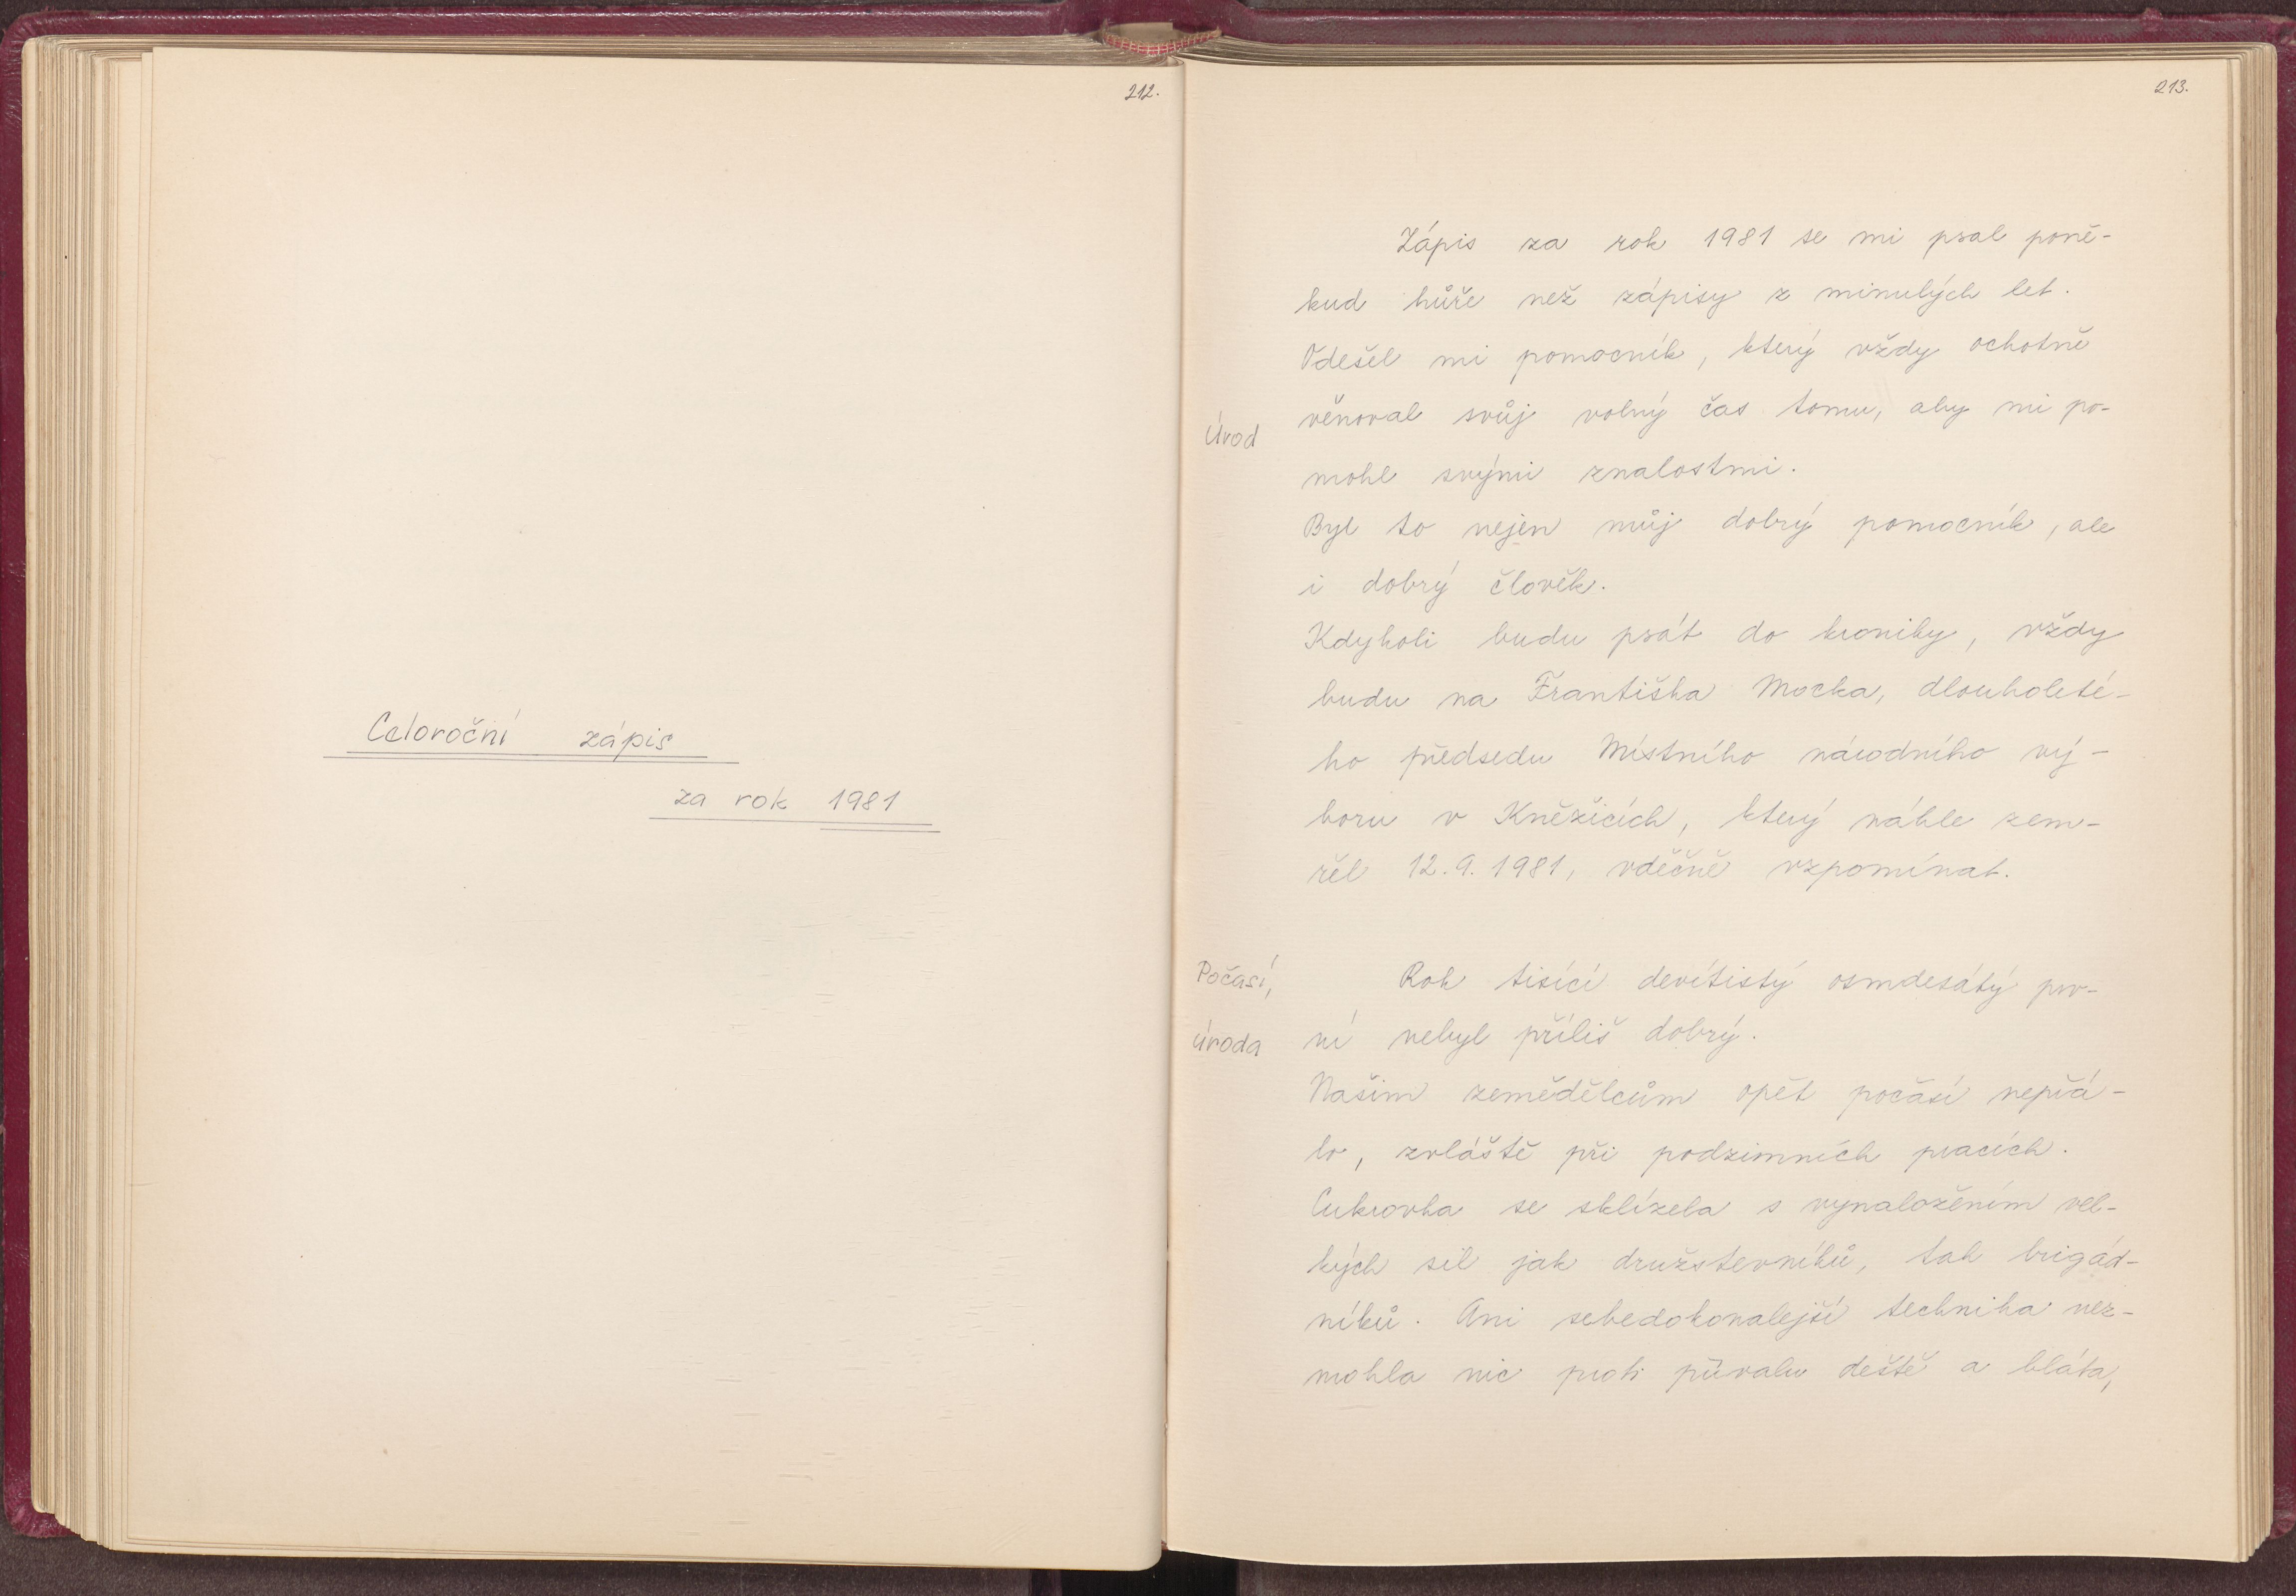 212.
Celoroční zápis
za rok 1981
213.
Zápis za rok 1981 se mi psal poně-
kud hůře než zápisy z minulých let.
Odešel mi pomocník, který vždy ochotně
Úvod
věnoval svůj volný čas tomu, aby mi po-
mohl svými znalostmi.
Byl to nejen můj dobrý pomocník, ale
i dobrý člověk.
Kdykoli budu psát do kroniky, vždy
budu na Františka Mocka, dlouholeté-
ho předsedu Místního národního vý-
boru v Kněžicích, který náhle zem-
řel 12.9.1981, vděčně vzpomínat.
Počasí,
úroda
Rok tisící devítistý osmdesátý prv-
ní nebyl příliš dobrý.
Našim zemědělcům opět počasí nepřá-
lo, zvláště při podzimních pracích.
Cukrovka se sklízela s vynaložením vel-
kých sil jak družstevníků, tak brigád-
níků. Ani sebedokonalejší technika nez-
mohla nic proti přívalu deště a bláta,